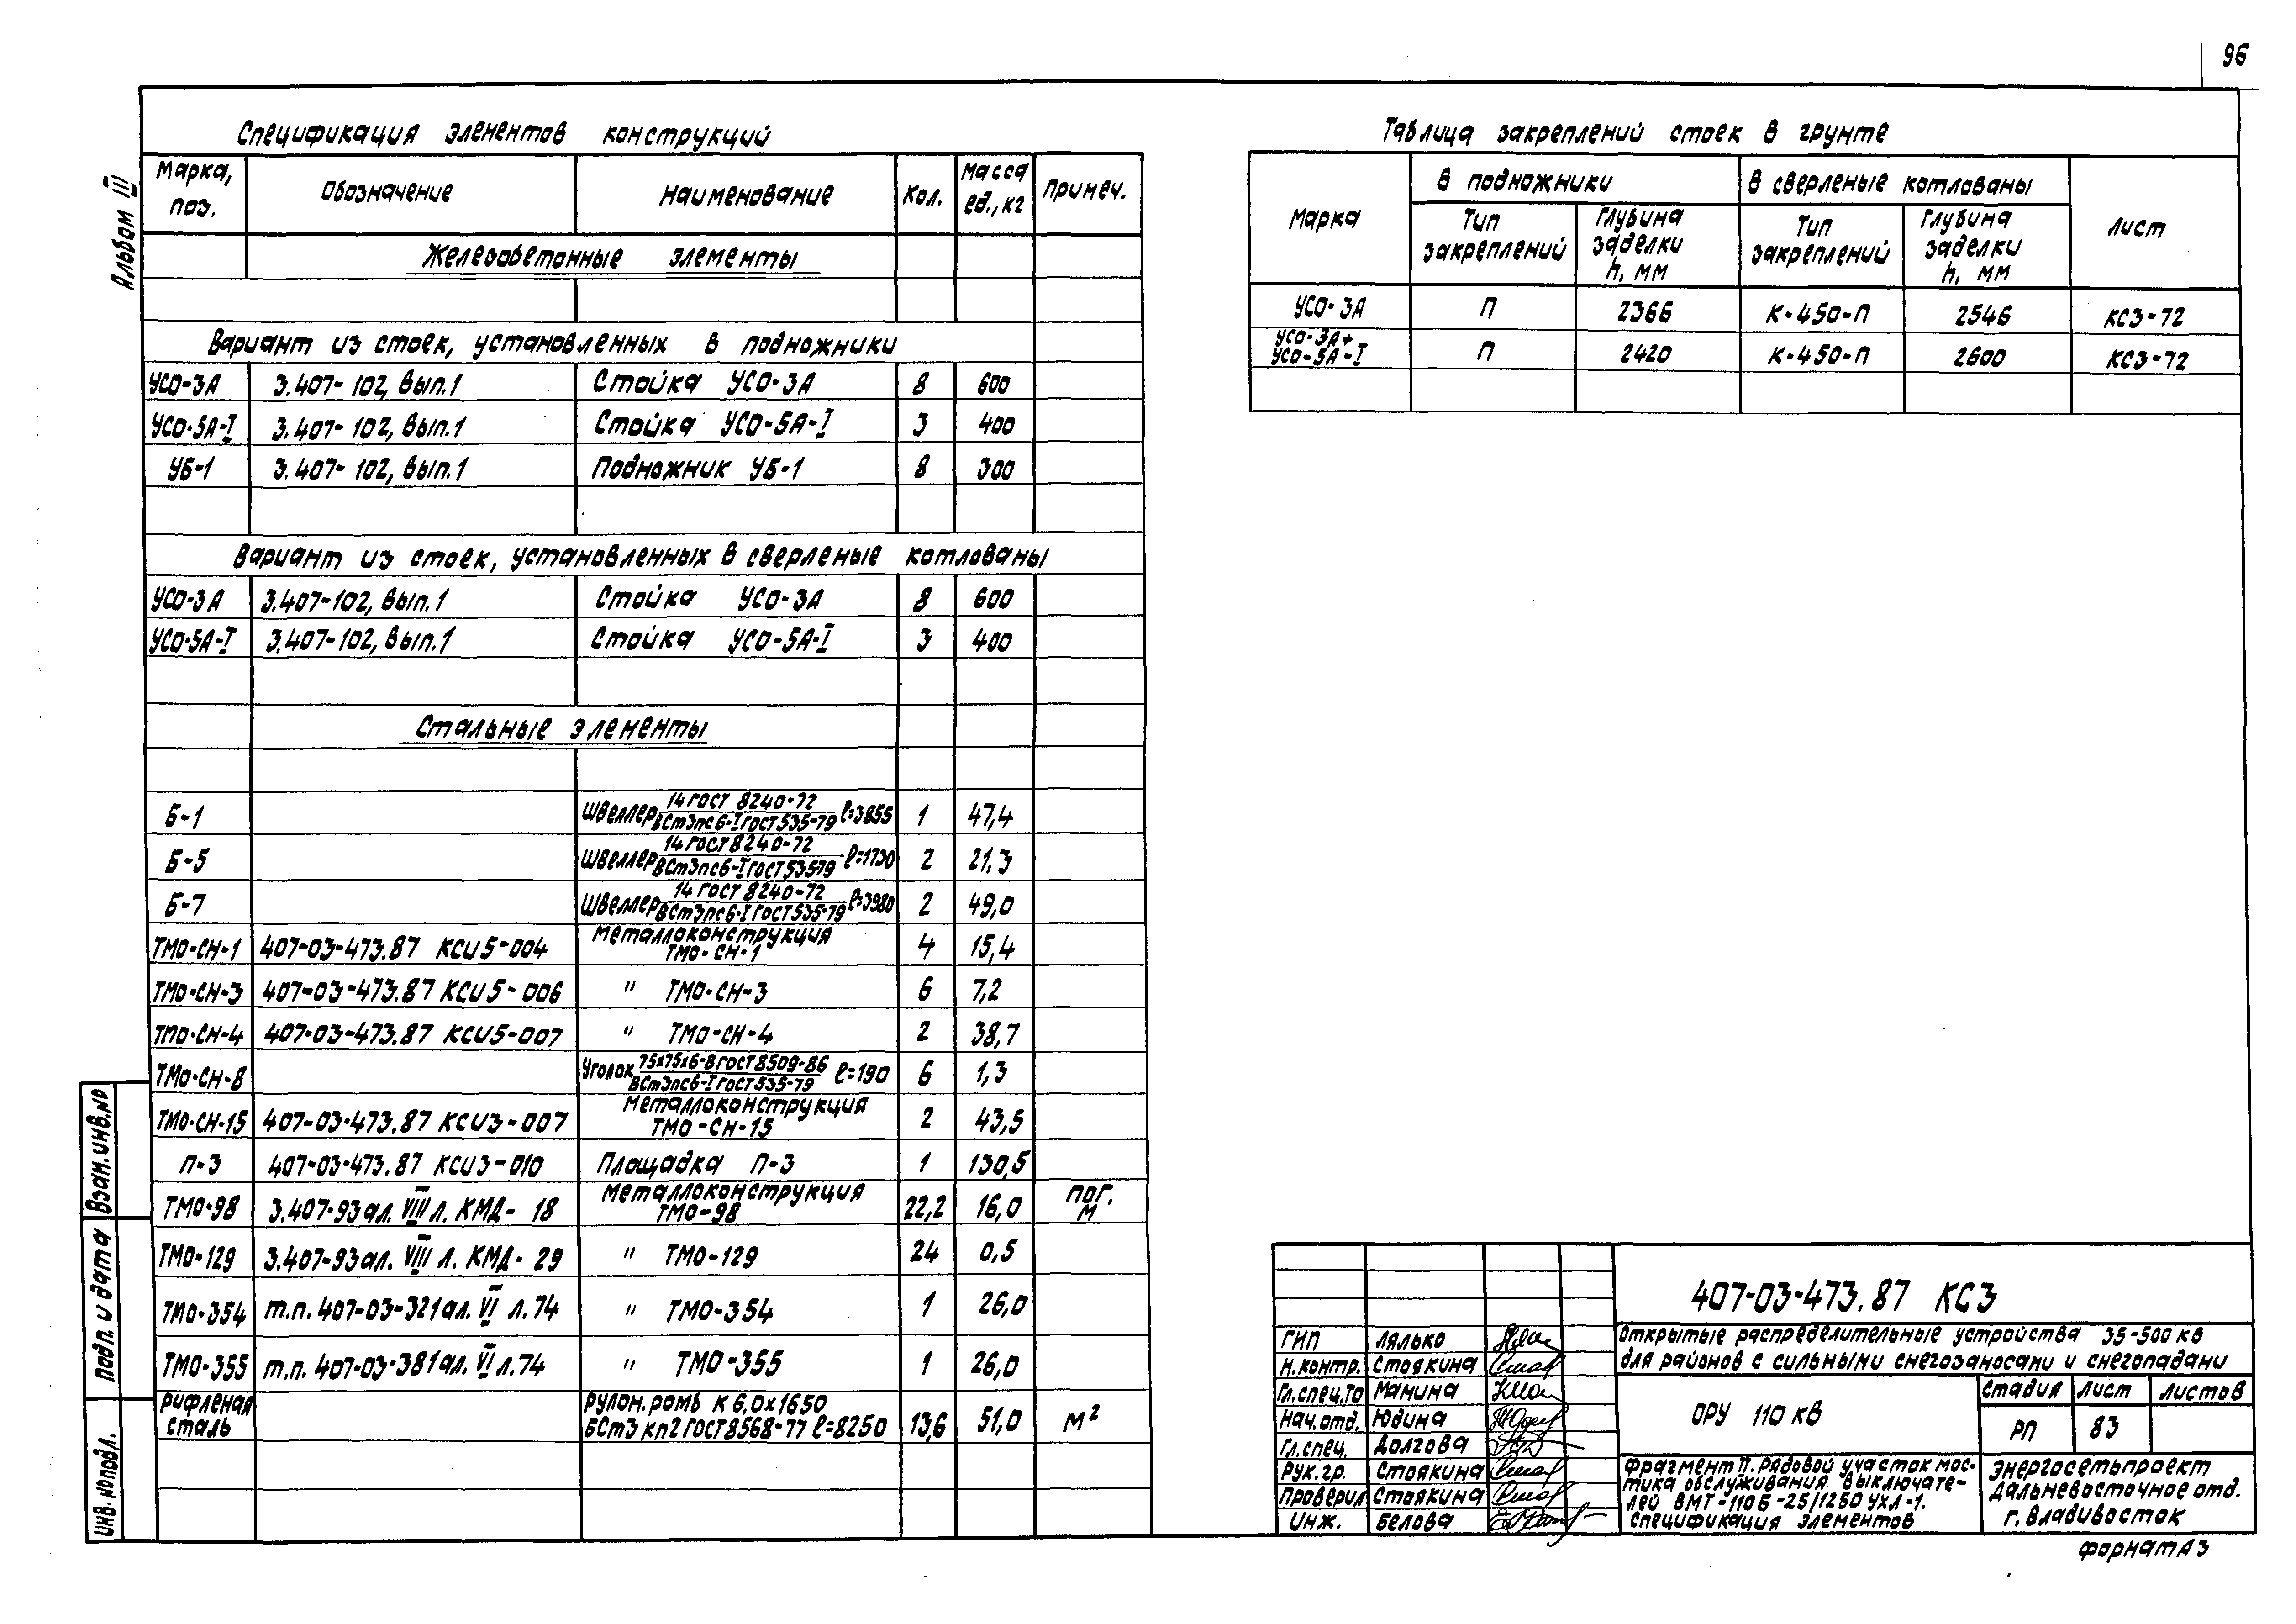 96
Альбом III
Спецификация элементов конструкций
Марка, поз. Обозначение Наименование Кол. Масса ед., кг Примеч.
Железобетонные элементы
Вариант из стоек, установленных в подножники
УСО-3А 3.407-102, вып.1 Стойка УСО-3А 8 600
УСО-5А-I 3.407-102, вып.1 Стойка УСО-5А-I 3 400
УБ-1 3.407-102, вып.1 Подножник УБ-1 8 300
Вариант из стоек, установленных в сверленые котлованы
УСО-3А 3.407-102, вып.1 Стойка УСО-3А 8 600
УСО-5А-I 3.407-102, вып.1 Стойка УСО-5А-I 3 400
Стальные элементы
Б-1 Швеллер 14 ГОСТ 8240-72 / ВСт3пс6-I ГОСТ 535-79 ℓ=3855 1 47,4
Б-5 Швеллер 14 ГОСТ 8240-72 / ВСт3пс6-I ГОСТ 535-79 ℓ=1730 2 21,3
Б-7 Швеллер 14 ГОСТ 8240-72 / ВСт3пс6-I ГОСТ 535-79 ℓ=3980 2 49,0
ТМО-СН-1 407-03-473.87 КСИ5-004 Металлоконструкция ТМО-СН-1 4 15,4
ТМО-СН-3 407-03-473.87 КСИ5-006 " ТМО-СН-3 6 7,2
ТМО-СН-4 407-03-473.87 КСИ5-007 " ТМО-СН-4 2 38,7
ТМО-СН-8 Уголок 75х75х6-В ГОСТ 8509-86 / ВСт3пс6-I ГОСТ 535-79 ℓ=190 6 1,3
ТМО-СН-15 407-03-473.87 КСИ3-007 Металлоконструкция ТМО-СН-15 2 43,5
П-3 407-03-473.87 КСИ3-010 Площадка П-3 1 130,5
ТМО-98 3.407-93 ал. VIII л. КМД-18 Металлоконструкция ТМО-98 22,2 16,0 пог. м
ТМО-129 3.407-93 ал. VIII л. КМД-29 " ТМО-129 24 0,5
ТМО-354 т.п. 407-03-321 ал. VI л.74 " ТМО-354 1 26,0
ТМО-355 т.п. 407-03-381 ал. VI л.74 " ТМО-355 1 26,0
Рифленая сталь Рулон. ромб К 6,0х1650 БСт3кп2 ГОСТ 8568-77 ℓ=8250 13,6 51,0 м²
Таблица закреплений стоек в грунте
Марка В подножники В сверленые котлованы Лист
Тип закреплений Глубина заделки h, мм Тип закреплений Глубина заделки h, мм
УСО-3А П 2366 К-450-П 2546 КС3-72
УСО-3А+ УСО-5А-I П 2420 К-450-П 2600 КС3-72
Взам. инв. №
Подп. и дата
Инв. № подл.
407-03-473.87 КС3
ГИП Лялько
Н.контр. Стоякина
Гл.спец.ТО Манина
Нач.отд. Юдина
Гл.спец. Долгова
Рук.гр. Стоякина
Проверил Стоякина
Инж. Белова
Открытые распределительные устройства 35-500 кв
для районов с сильными снегозаносами и снегопадами
ОРУ 110 кв
Стадия Лист Листов
РП 83
Фрагмент II. Рядовой участок мос-
тика обслуживания выключате-
лей ВМТ-110Б-25/1250 УХЛ-1.
Спецификация элементов
Энергосетьпроект
Дальневосточное отд.
г. Владивосток
Формат А3